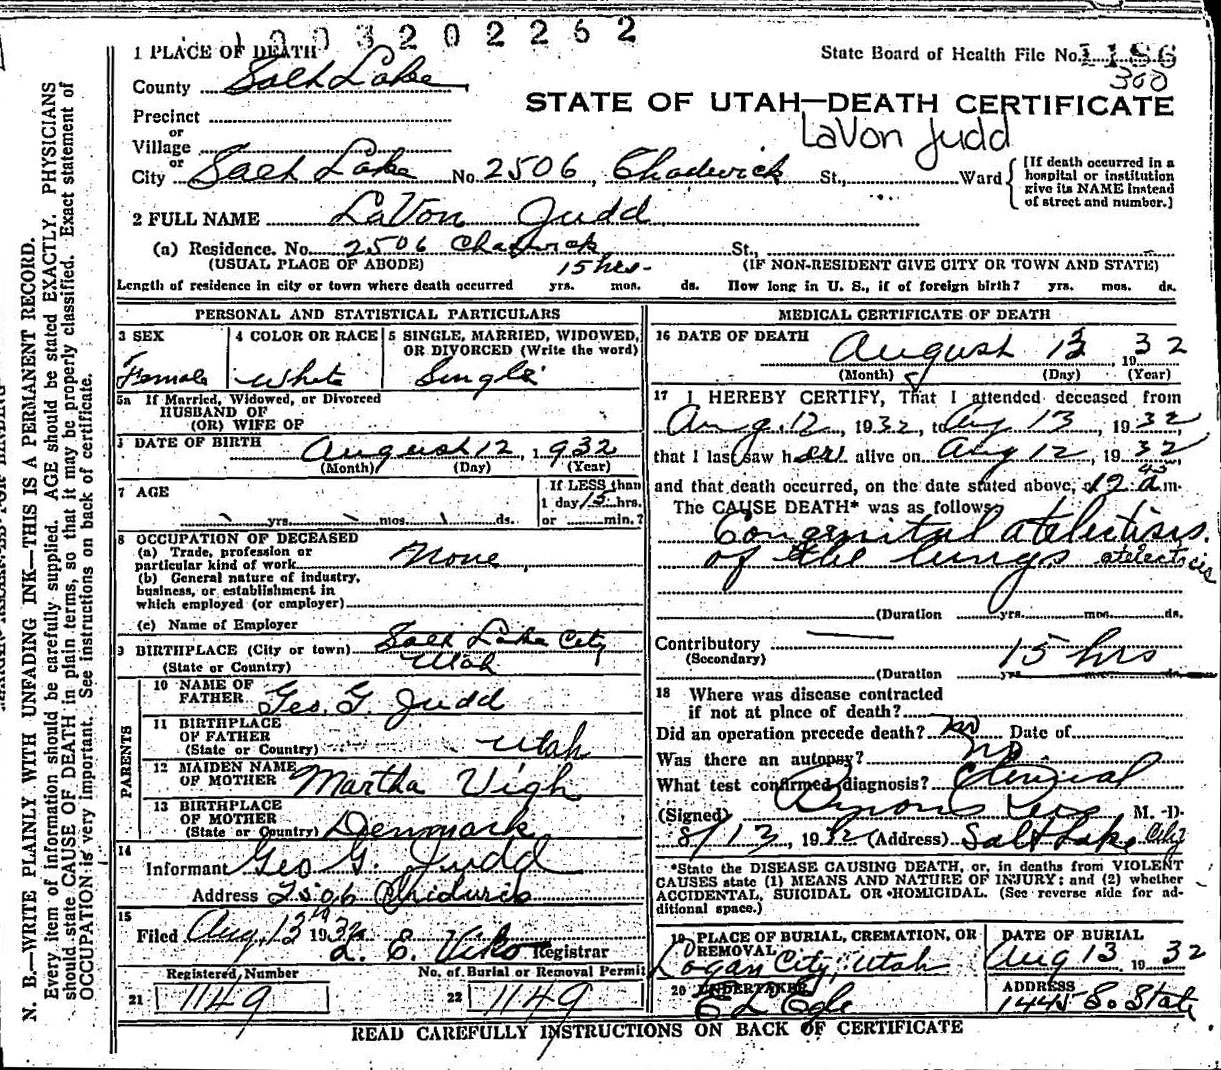 1003202262
1 PLACE OF DEATH
State Board of Health File No. 1186
County Salt Lake
300
STATE OF UTAH—DEATH CERTIFICATE
Precinct
or
LaVon Judd
Village
or
City Salt Lake No. 2506, Chadwick St., Ward
[If death occurred in a
hospital or institution
give its NAME instead
of street and number.]
2 FULL NAME LaVon Judd
(a) Residence. No. 2506 Chadwick St.,
(USUAL PLACE OF ABODE) 15 hrs- (IF NON-RESIDENT GIVE CITY OR TOWN AND STATE)
Length of residence in city or town where death occurred yrs. mos. ds. How long in U. S., if of foreign birth? yrs. mos. ds.
PERSONAL AND STATISTICAL PARTICULARS
3 SEX 4 COLOR OR RACE 5 SINGLE, MARRIED, WIDOWED,
OR DIVORCED (Write the word)
Female White Single
5a If Married, Widowed, or Divorced
HUSBAND OF
(OR) WIFE OF
DATE OF BIRTH August 12, 1932
(Month) (Day) (Year)
7 AGE If LESS than
1 day 15 hrs.
yrs. mos. ds. or min.?
8 OCCUPATION OF DECEASED
(a) Trade, profession or
particular kind of work None
(b) General nature of industry,
business, or establishment in
which employed (or employer)
(c) Name of Employer
9 BIRTHPLACE (City or town) Salt Lake City
(State or Country) Utah
PARENTS
10 NAME OF
FATHER Geo. G. Judd
11 BIRTHPLACE
OF FATHER
(State or Country) Utah
12 MAIDEN NAME
OF MOTHER Martha Vigh
13 BIRTHPLACE
OF MOTHER
(State or Country) Denmark
14
Informant Geo G. Judd
Address 2506 Chadwick
15
Filed Aug. 13 1932 L. E. Viko Registrar
Registered Number No. of Burial or Removal Permit
21 1149 22 1149
MEDICAL CERTIFICATE OF DEATH
16 DATE OF DEATH August 13, 1932
(Month) (Day) (Year)
17 I HEREBY CERTIFY, That I attended deceased from
Aug. 12, 1932, to Aug 13, 1932,
that I last saw her alive on Aug 12, 1932,
and that death occurred, on the date stated above, 12 45 a.m.
The CAUSE DEATH* was as follows
Congenital atelectisis.
of the lungs atelectisis
(Duration yrs. mos. ds.
Contributory
(Secondary) 15 hrs
(Duration yrs. mos. ds.
18 Where was disease contracted
if not at place of death?
Did an operation precede death? no Date of
Was there an autopsy? no
What test confirmed diagnosis? Clinical
(Signed) M. D.
8/13, 1932 (Address) Salt Lake City
*State the DISEASE CAUSING DEATH, or, in deaths from VIOLENT
CAUSES state (1) MEANS AND NATURE OF INJURY; and (2) whether
ACCIDENTAL, SUICIDAL OR HOMICIDAL. (See reverse side for ad-
ditional space.)
19 PLACE OF BURIAL, CREMATION, OR
REMOVAL DATE OF BURIAL
Logan City, Utah Aug 13 1932
20 UNDERTAKER ADDRESS
1445 So. State
READ CAREFULLY INSTRUCTIONS ON BACK OF CERTIFICATE
N. B.—WRITE PLAINLY WITH UNFADING INK—THIS IS A PERMANENT RECORD.
Every item of information should be carefully supplied. AGE should be stated EXACTLY. PHYSICIANS
should state CAUSE OF DEATH in plain terms, so that it may be properly classified. Exact statement of
OCCUPATION is very important. See instructions on back of certificate.